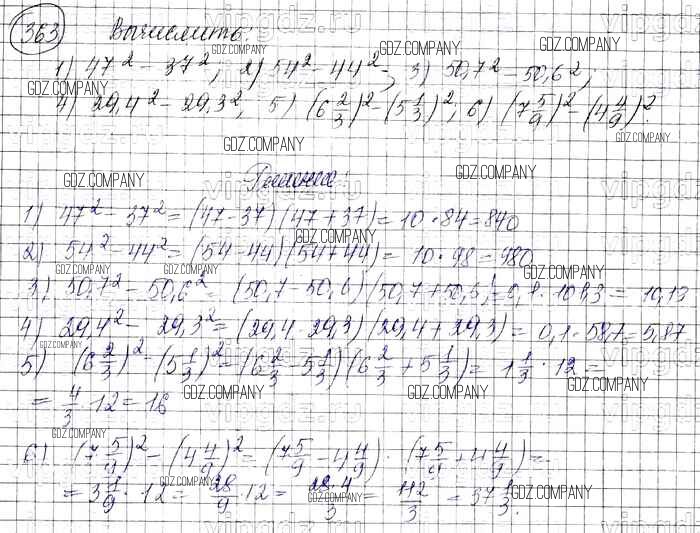 363 Вычислить:
1) 47² − 37²; 2) 54² − 44²; 3) 50,7² − 50,6²;
4) 29,4² − 29,3²; 5) (6 2/3)² − (5 1/3)²; 6) (7 5/9)² − (4 4/9)².
Решение
1) 47² − 37² = (47 − 37)(47 + 37) = 10 · 84 = 840
2) 54² − 44² = (54 − 44)(54 + 44) = 10 · 98 = 980
3) 50,7² − 50,6² = (50,7 − 50,6)(50,7 + 50,6) = 0,1 · 101,3 = 10,13
4) 29,4² − 29,3² = (29,4 − 29,3)(29,4 + 29,3) = 0,1 · 58,7 = 5,87
5) (6 2/3)² − (5 1/3)² = (6 2/3 − 5 1/3)(6 2/3 + 5 1/3) = 1 1/3 · 12 =
= 4/3 · 12 = 16
6) (7 5/9)² − (4 4/9)² = (7 5/9 − 4 4/9) · (7 5/9 + 4 4/9) =
= 3 1/9 · 12 = 28/9 · 12 = 28·4/3 = 112/3 = 37 1/3.
GDZ.COMPANY
vipgdz.ru